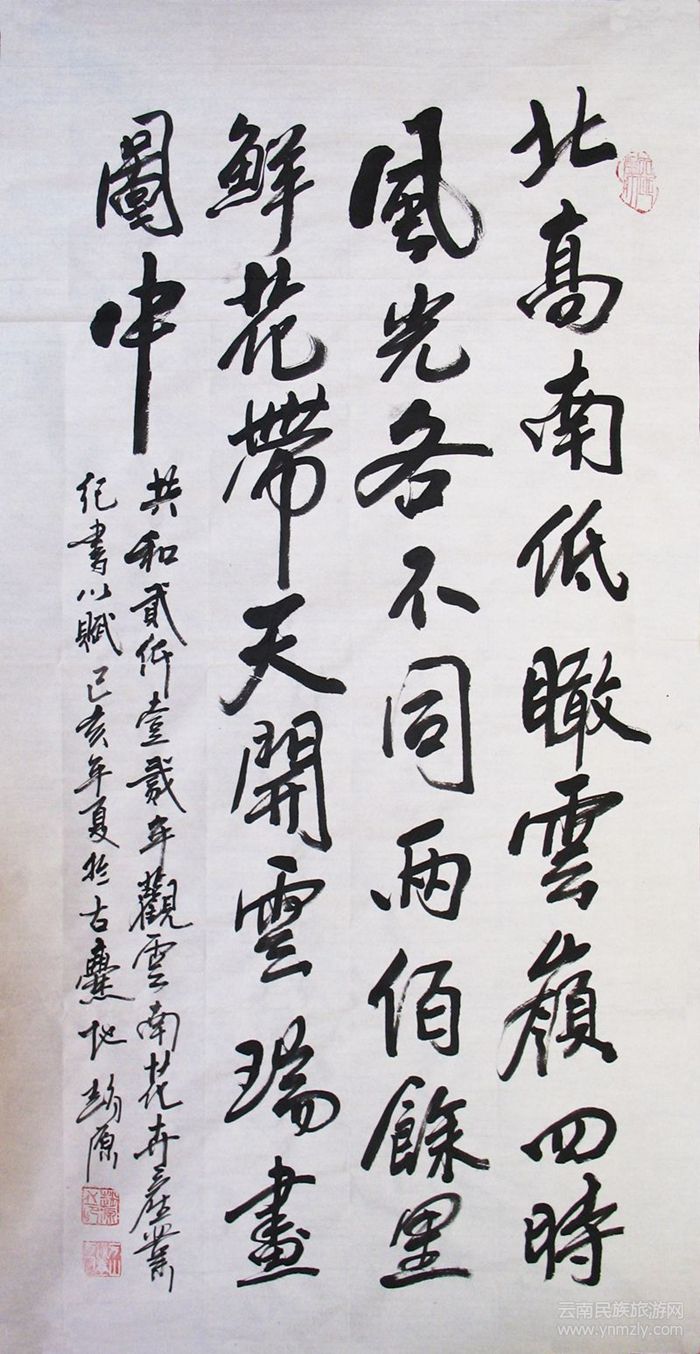 北高南低瞰雲嶺四時
風光各不同兩佰餘里
鮮花帶天開雲瑞畫
圖中
共和貳仟壹貳年觀雲南花卉產業
紀書以賦己亥年夏於古爨地趙原
云南民族旅游网
www.ynmzly.com